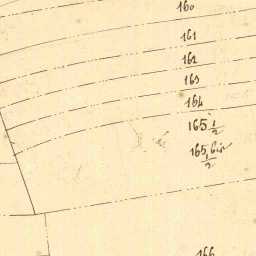 160
161
162
163
164
165 1/2
165 bis 1/2
166